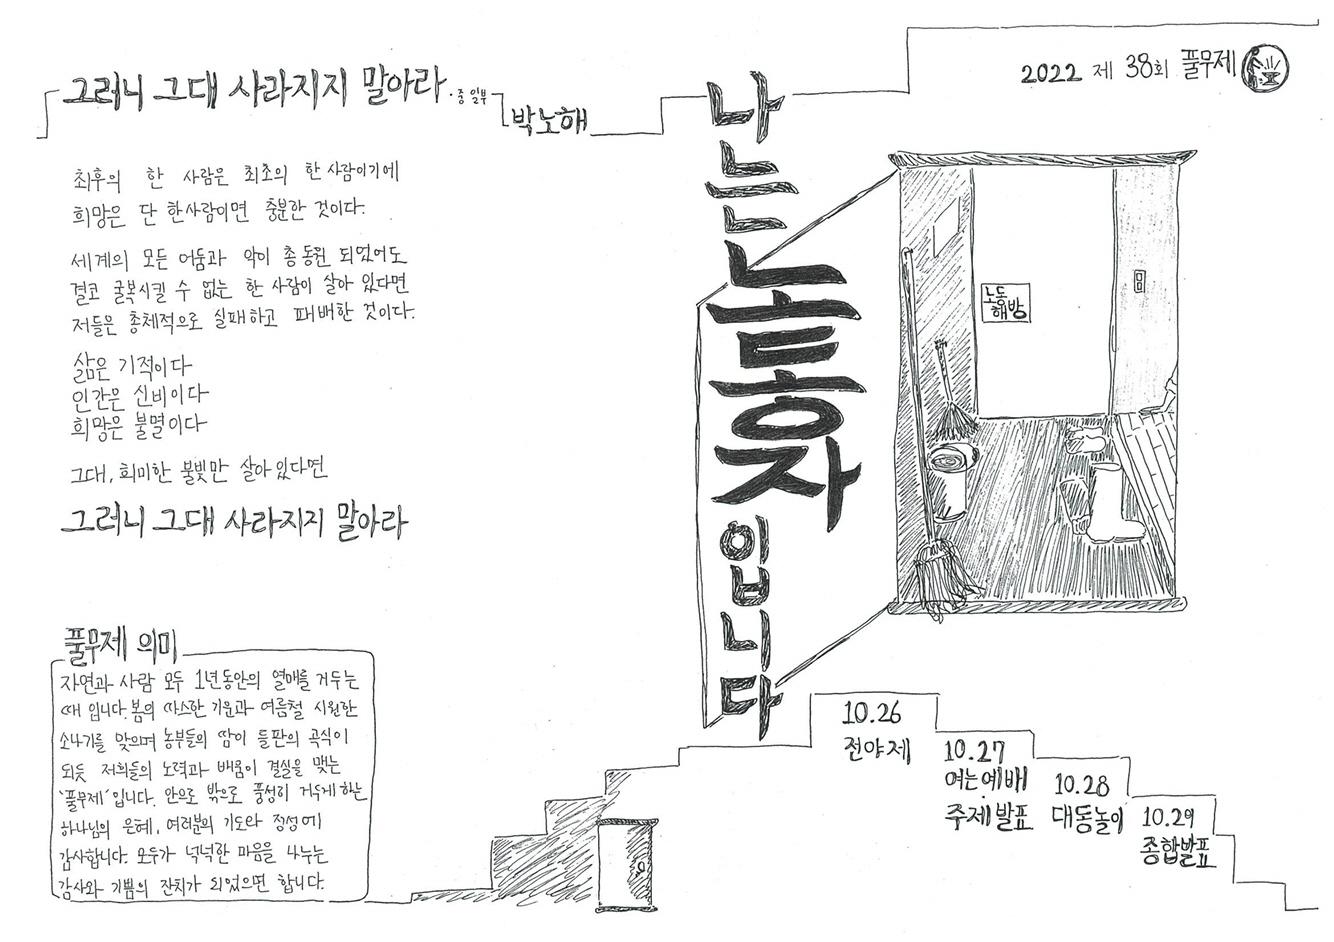 그러니 그대 사라지지 말아라 · 중 일부
박노해
최후의 한 사람은 최초의 한 사람이기에
희망은 단 한사람이면 충분한 것이다.
세계의 모든 어둠과 악이 총동원 되었어도
결코 굴복시킬 수 없는 한 사람이 살아 있다면
저들은 총체적으로 실패하고 패배한 것이다.
삶은 기적이다
인간은 신비이다
희망은 불멸이다
그대, 희미한 불빛만 살아 있다면
그러니 그대 사라지지 말아라
풀무제 의미
자연과 사람 모두 1년동안의 열매를 거두는
때 입니다. 봄의 따스한 기운과 여름철 시원한
소나기를 맞으며 농부들의 땀이 들판의 곡식이
되듯 저희들의 노력과 배움이 결실을 맺는
'풀무제'입니다. 안으로 밖으로 풍성히 거두게 하는
하나님의 은혜, 여러분의 기도와 정성에
감사합니다. 모두가 넉넉한 마음을 나누는
감사와 기쁨의 잔치가 되었으면 합니다.
2022 제 38회 풀무제
나는 노동자입니다
노동
해방
10.26
전야제
10.27
여는예배
주제발표
10.28
대동놀이
10.29
종합발표